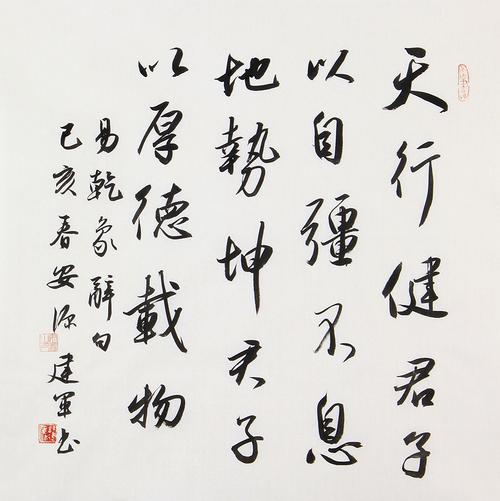 天行健君子
以自彊不息
地勢坤君子
以厚德載物
易乾象辭句
己亥春安源建軍书